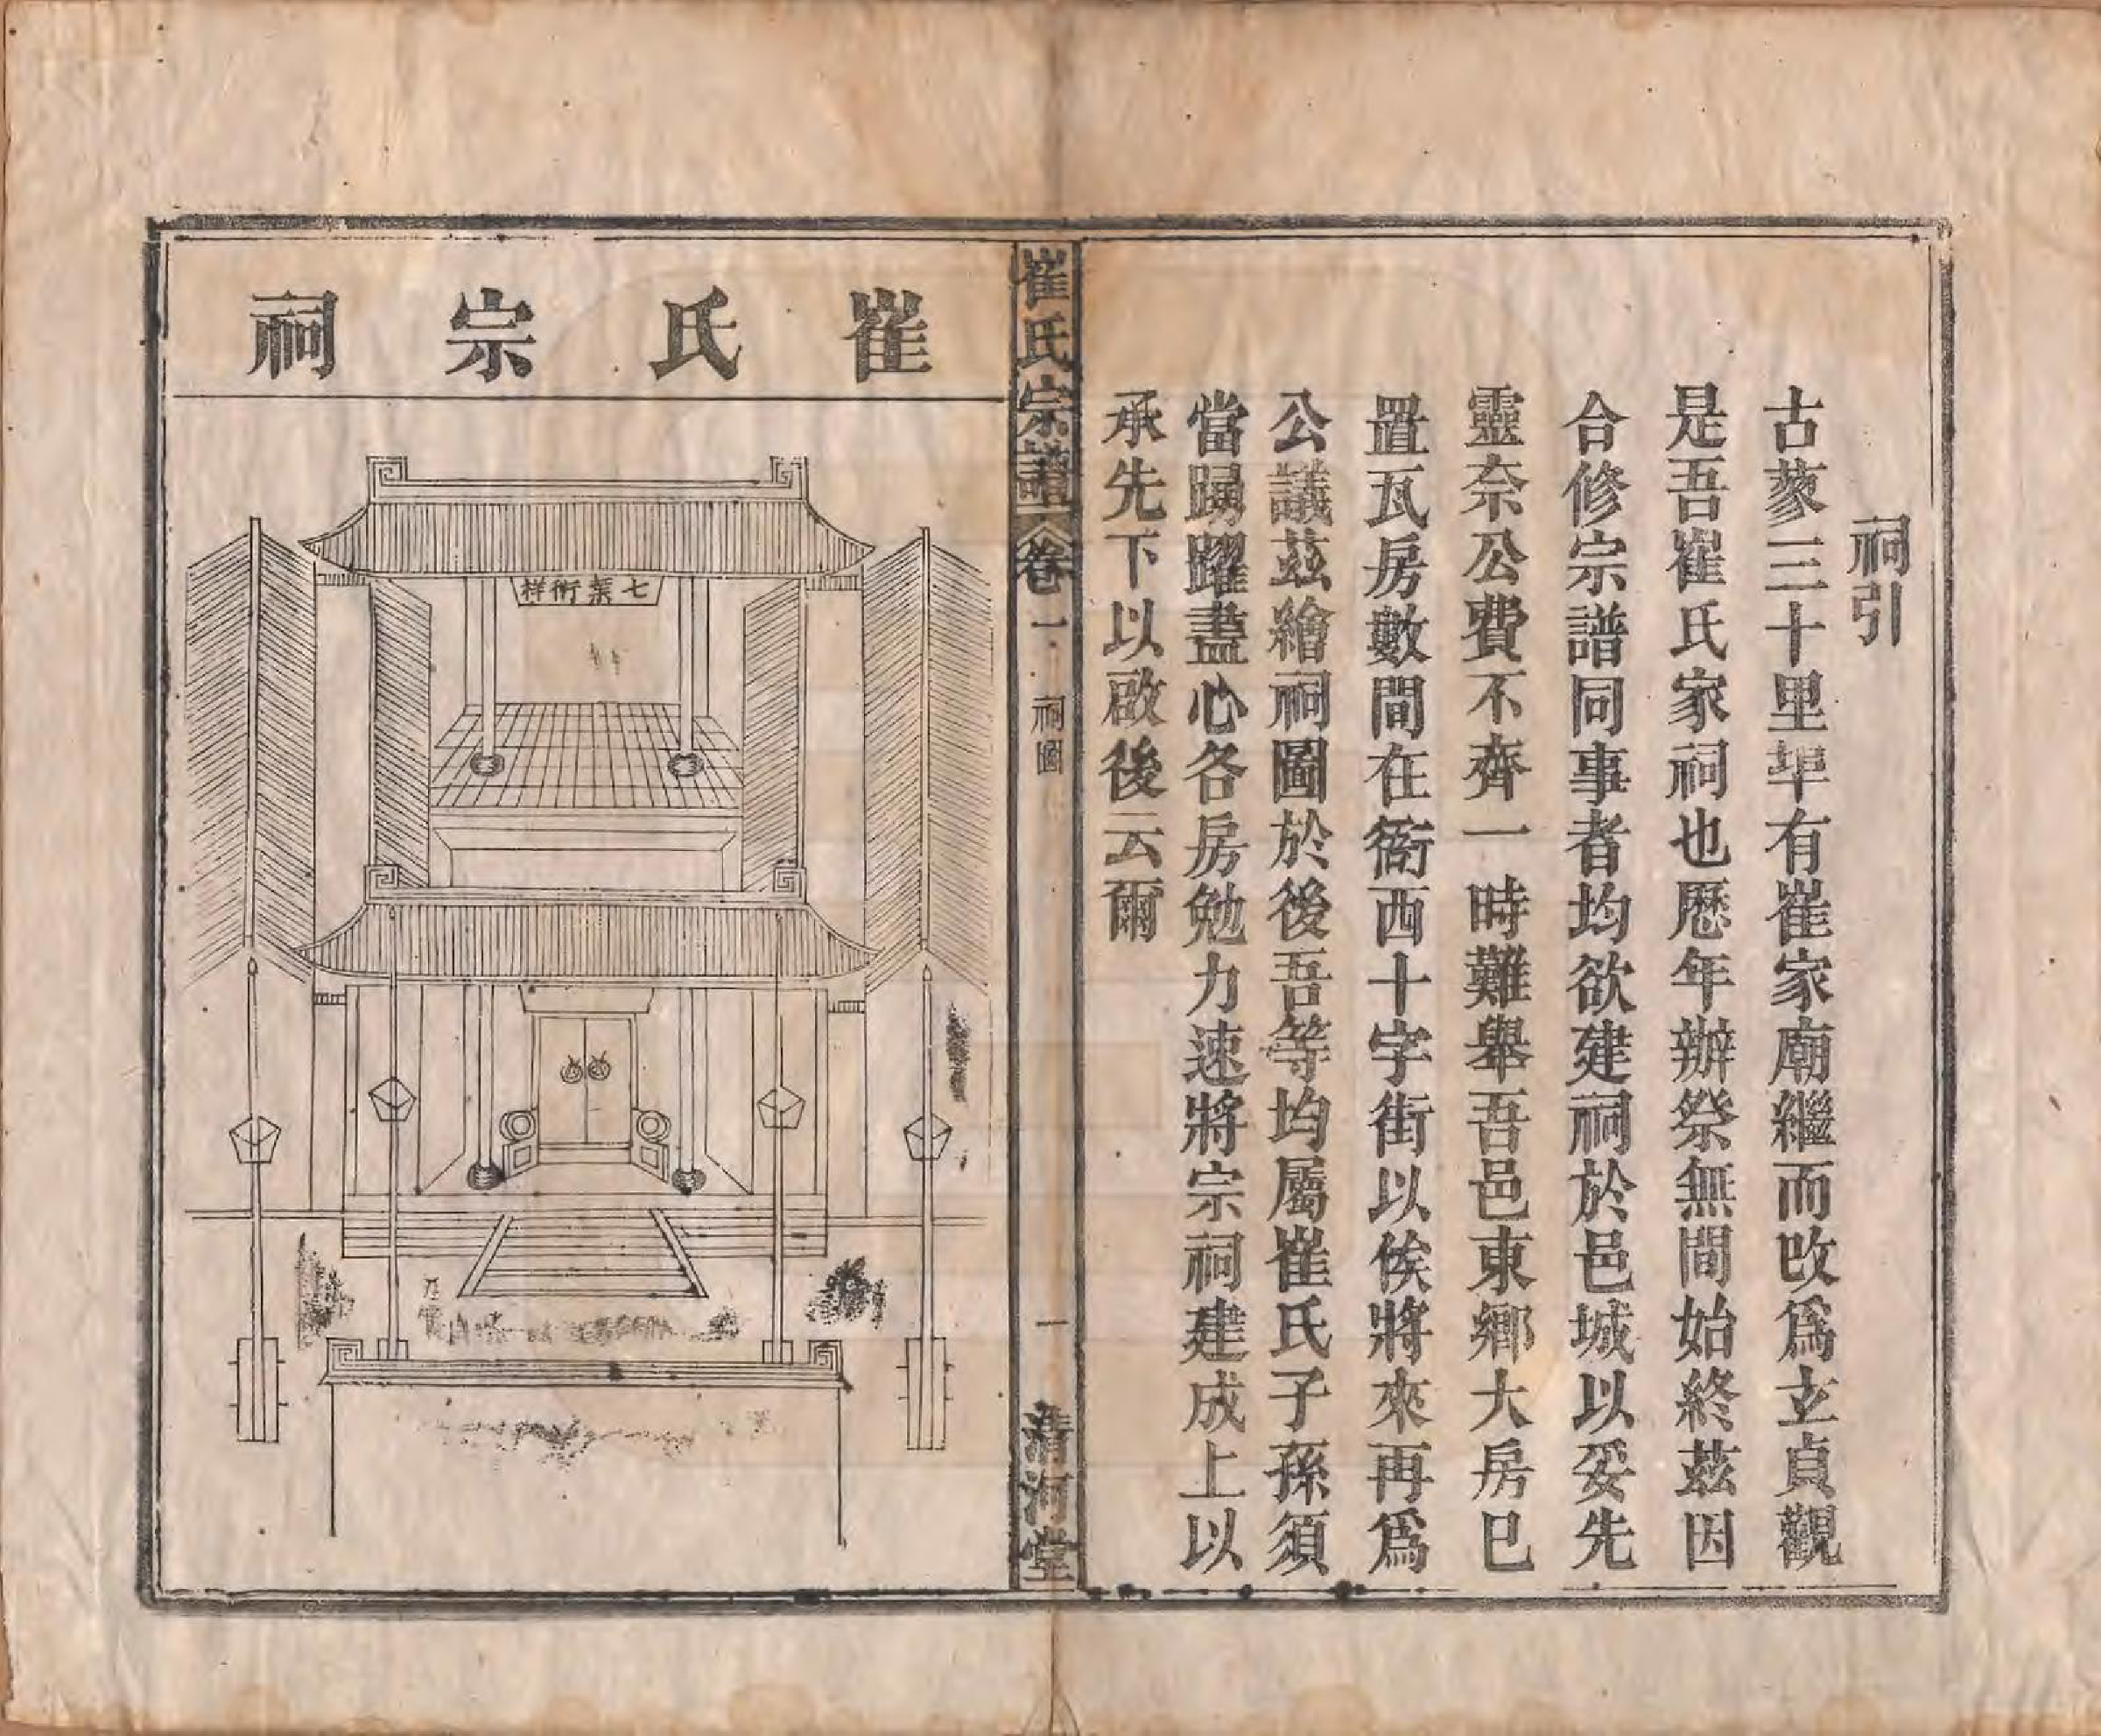 祠引
古蓼三十里埠有崔家廟繼而改爲立貞觀
是吾崔氏家祠也歷年辦祭無間始終茲因
合修宗譜同事者均欲建祠於邑城以妥先
靈奈公費不齊一時難舉吾邑東鄉大房巳
置瓦房數間在衙西十字街以俟將來再爲
公議茲繪祠圖於後吾等均屬崔氏子孫須
當踢躍盡心各房勉力速將宗祠建成上以
承先下以啟後云爾
崔氏宗譜 卷一 祠圖 一 清河堂
崔氏宗祠
七葉衍祥